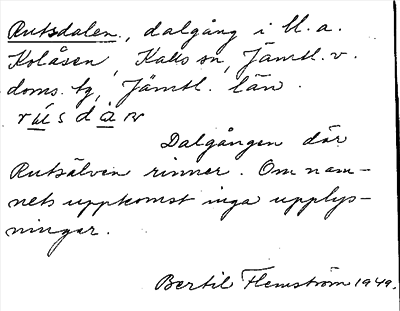 Rutsdalen, dalgång i bl. a.
Kolåsen, Kalls sn, Jämtl. v.
doms. tg, Jämtl. län.
rúsdàɴ
Dalgången där
Rutsälven rinner. Om nam-
nets uppkomst inga upplys-
ningar.
Bertil Flemström 1949.